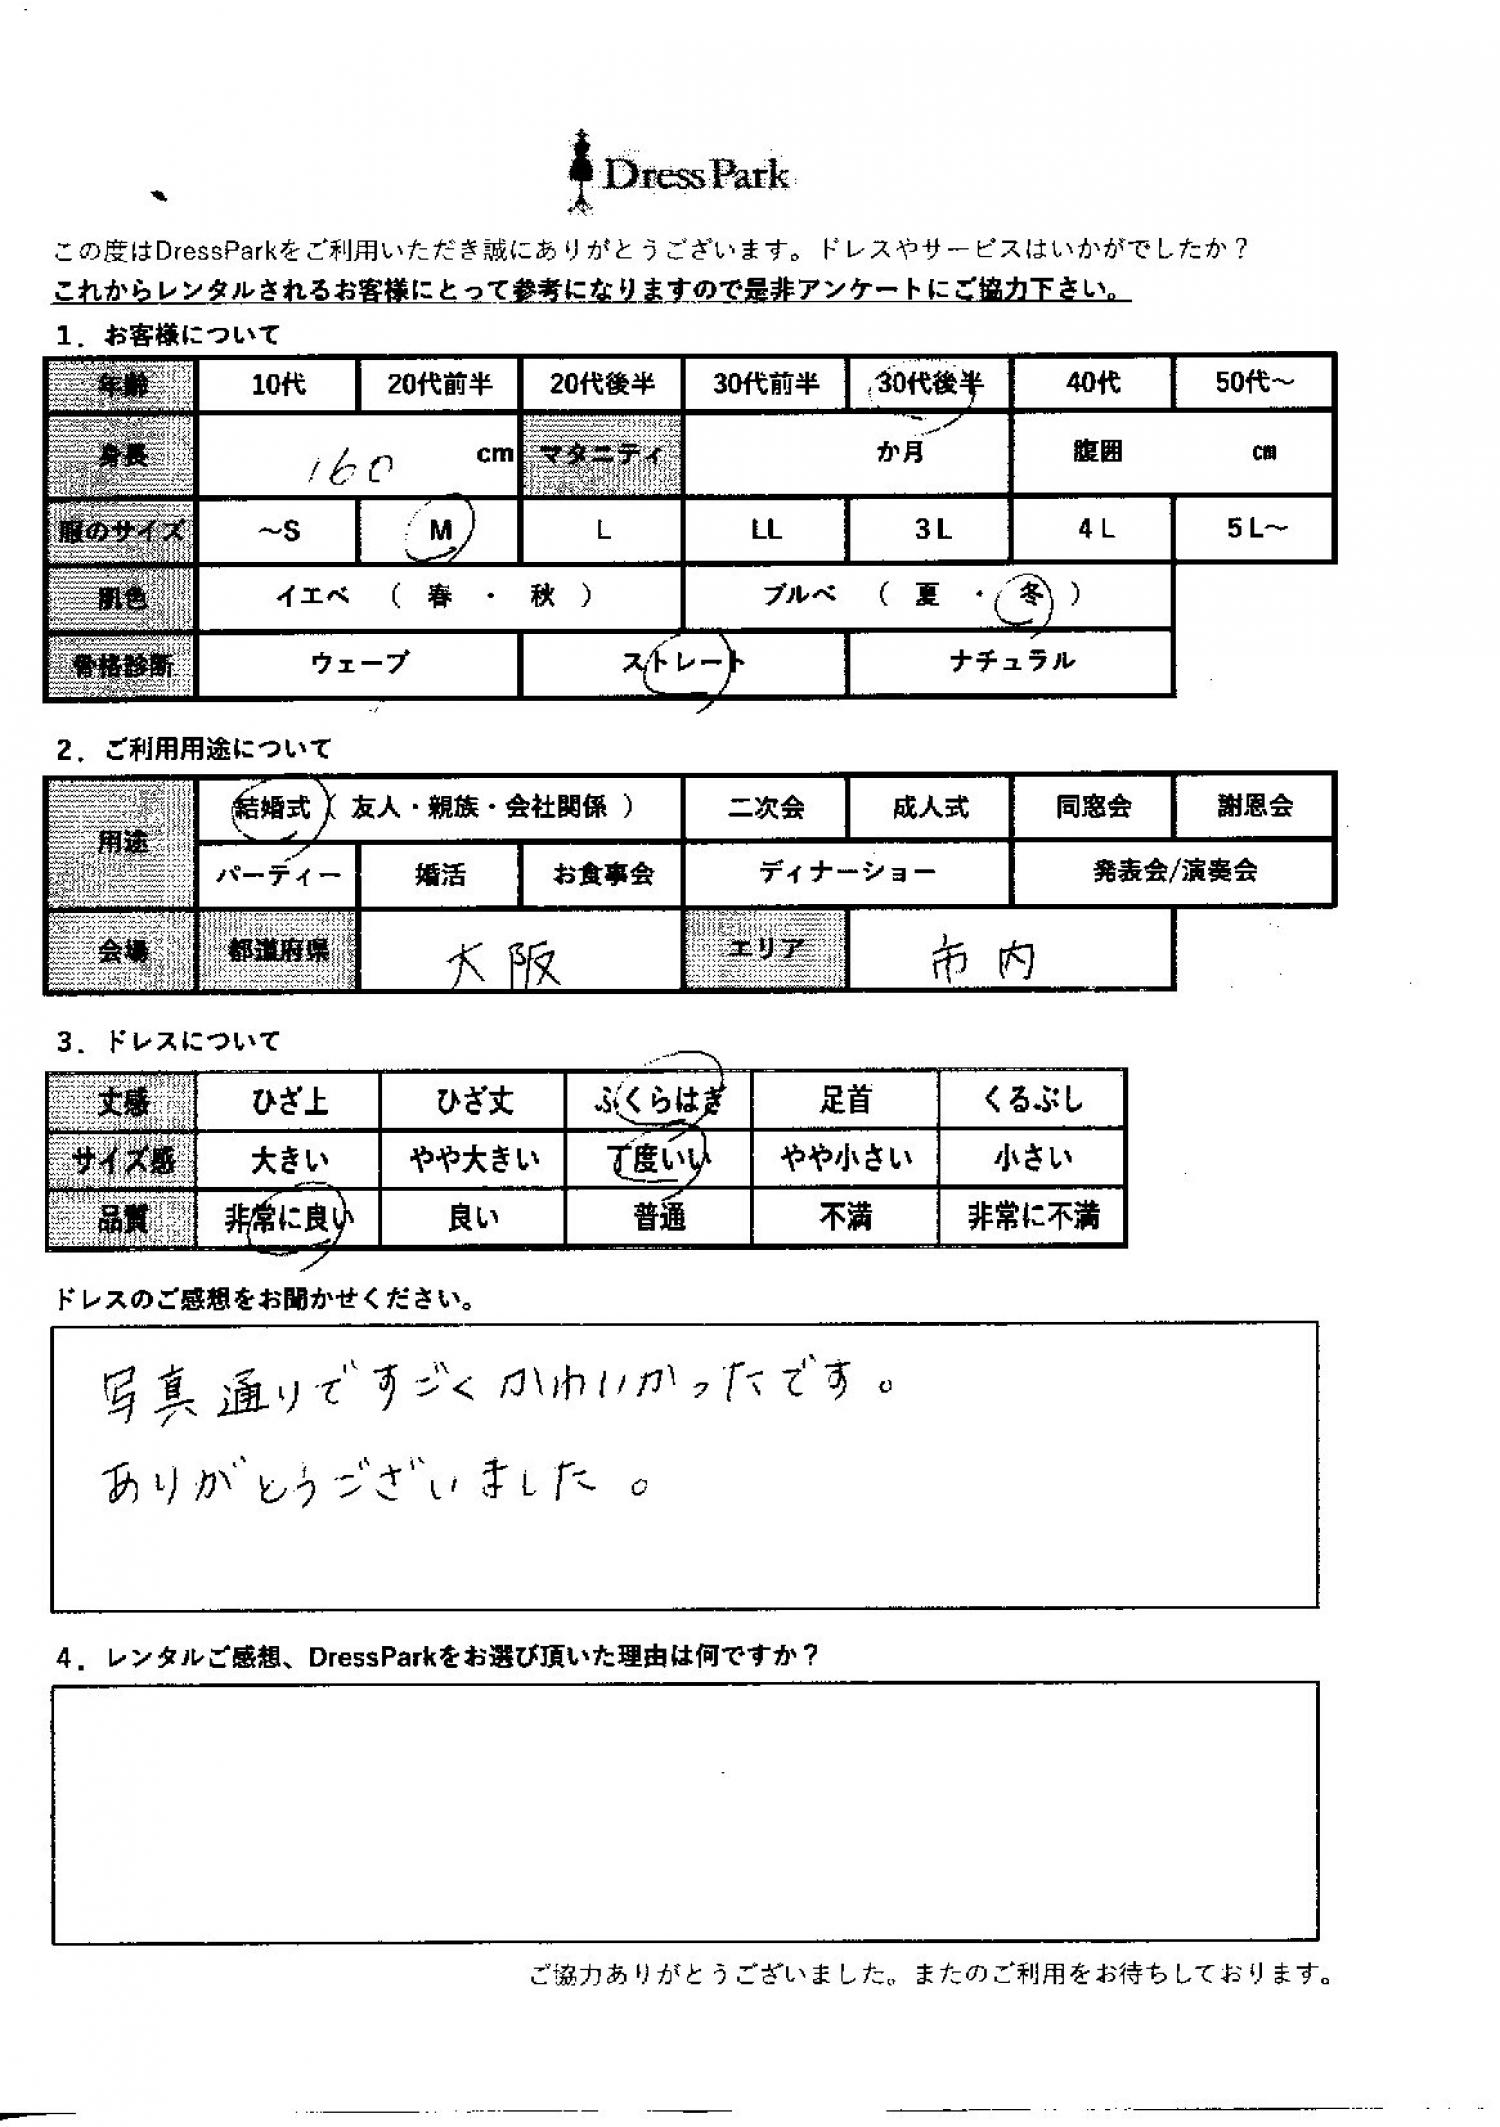 DressPark
この度はDressParkをご利用いただき誠にありがとうございます。ドレスやサービスはいかがでしたか？
これからレンタルされるお客様にとって参考になりますので是非アンケートにご協力下さい。
1．お客様について
年齢 10代 20代前半 20代後半 30代前半 30代後半 40代 50代～
身長 160 cm マタニティ か月 腹囲 cm
服のサイズ ～S M L LL 3L 4L 5L～
肌色 イエベ （ 春 ・ 秋 ） ブルベ （ 夏 ・ 冬 ）
骨格診断 ウェーブ ストレート ナチュラル
2．ご利用用途について
用途 結婚式（ 友人・親族・会社関係 ） 二次会 成人式 同窓会 謝恩会
パーティー 婚活 お食事会 ディナーショー 発表会/演奏会
会場 都道府県 大阪 エリア 市内
3．ドレスについて
丈感 ひざ上 ひざ丈 ふくらはぎ 足首 くるぶし
サイズ感 大きい やや大きい 丁度いい やや小さい 小さい
品質 非常に良い 良い 普通 不満 非常に不満
ドレスのご感想をお聞かせください。
写真通りですごくかわいかったです。
ありがとうございました。
4．レンタルご感想、DressParkをお選び頂いた理由は何ですか？
ご協力ありがとうございました。またのご利用をお待ちしております。